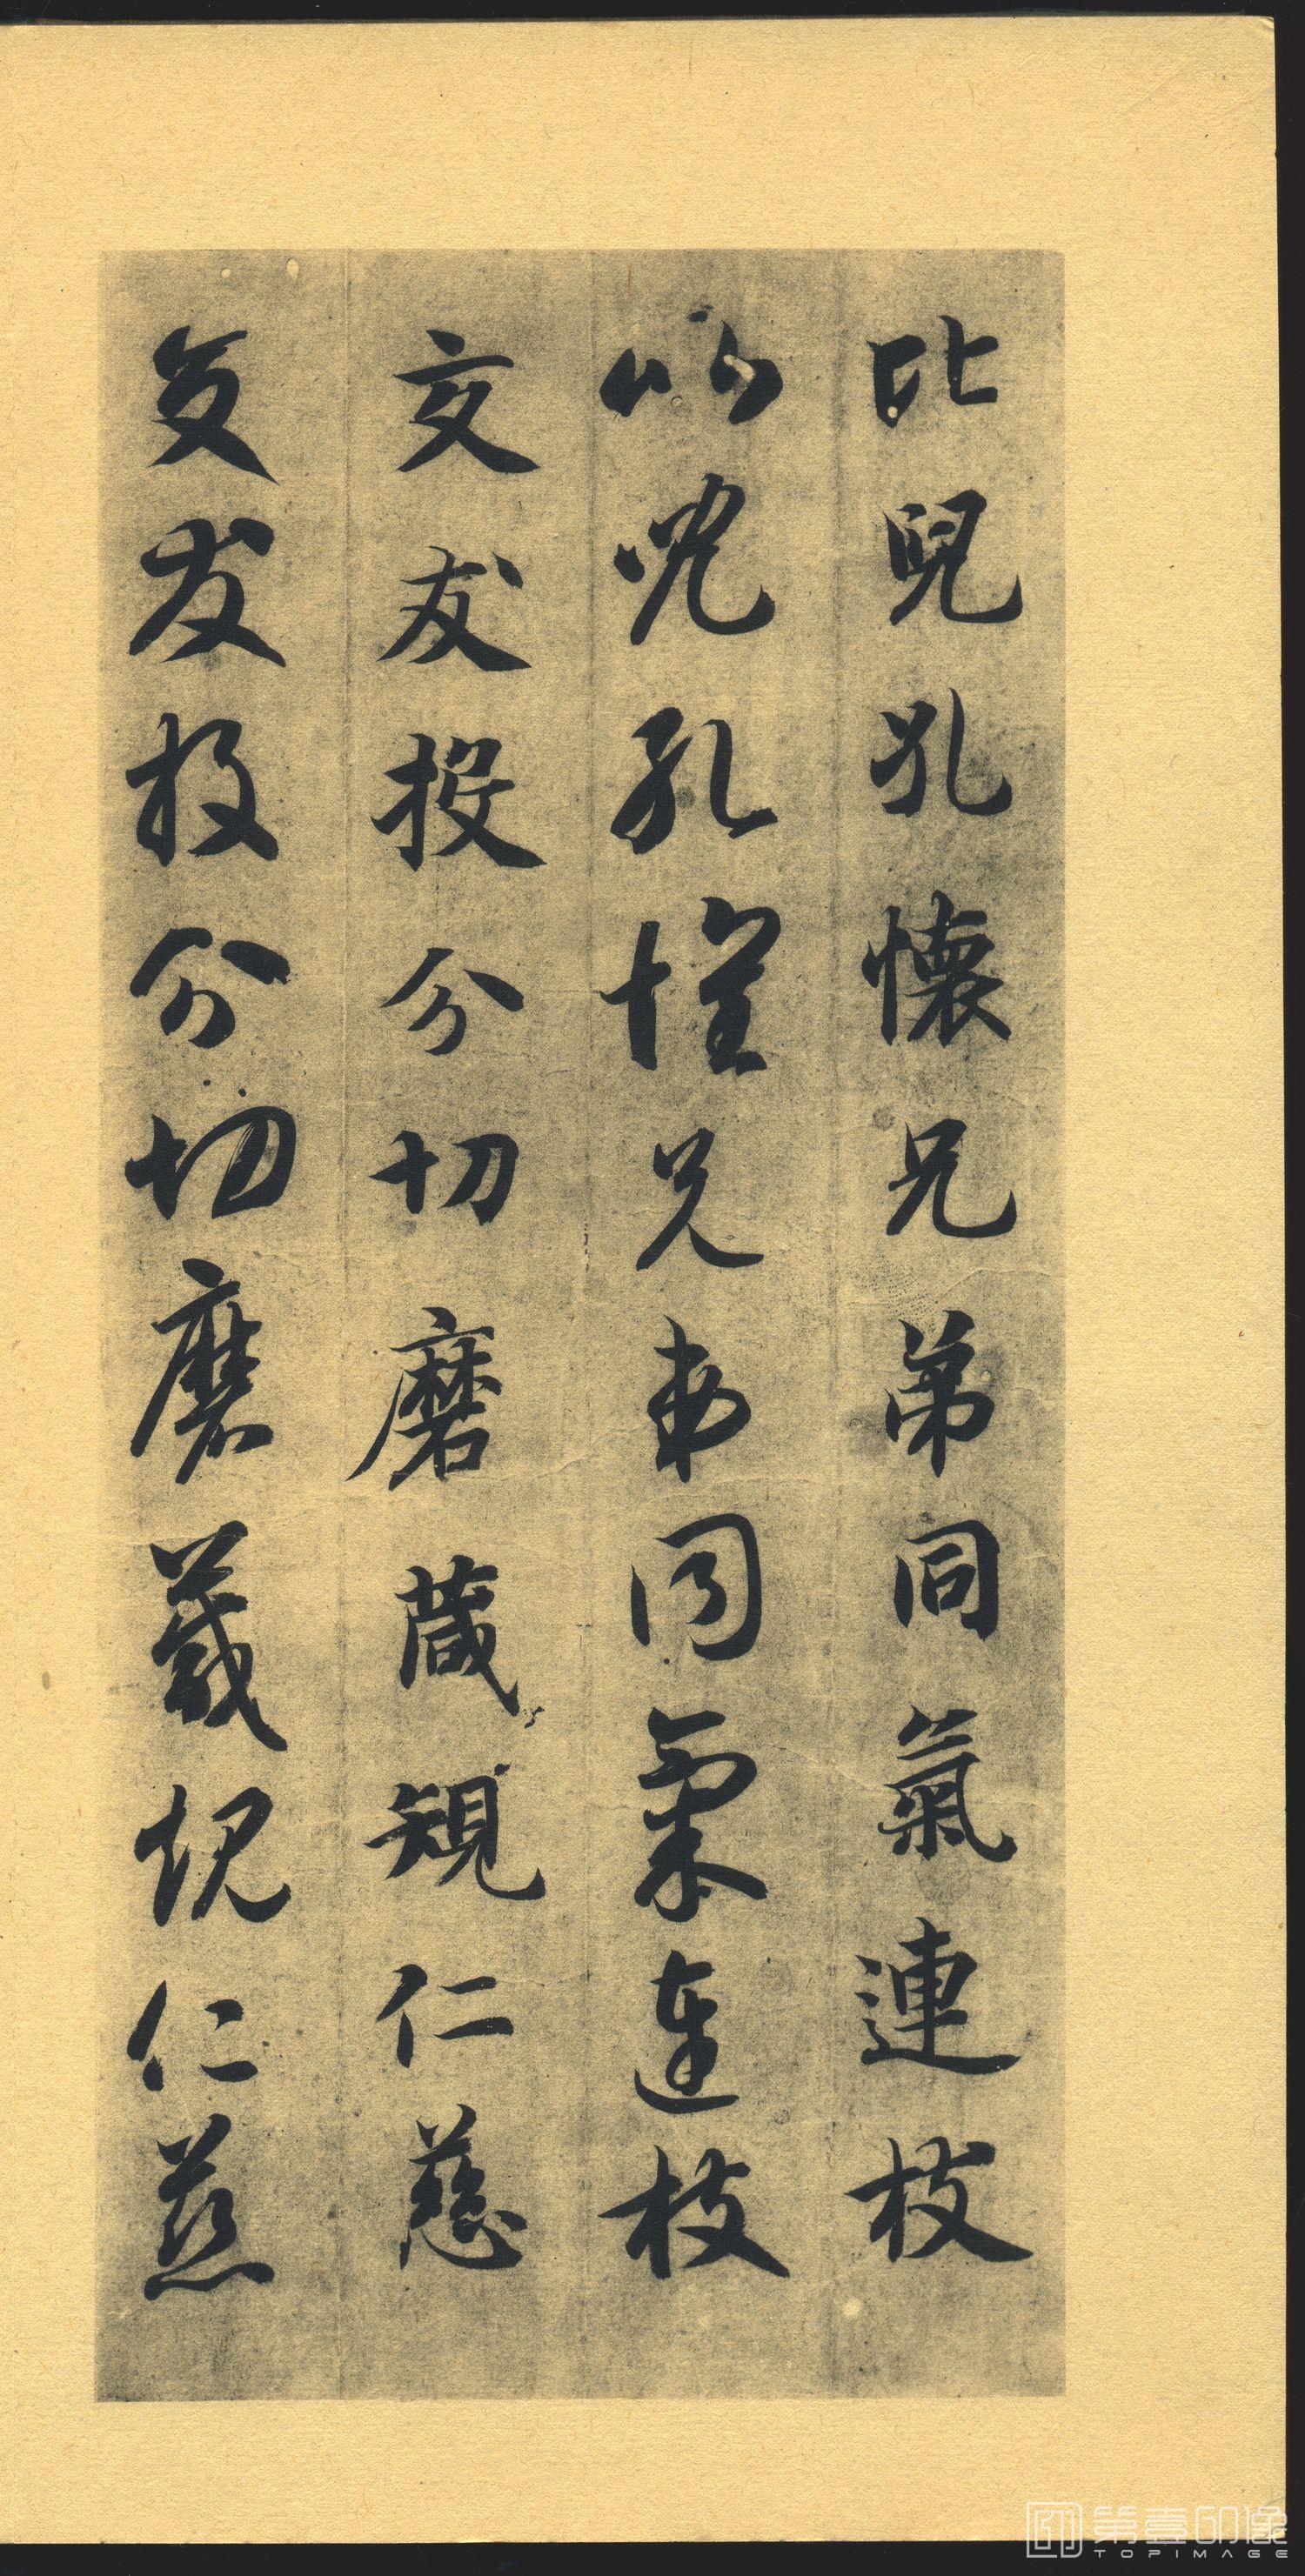 比兒孔懷兄弟同氣連枝
比兒孔懷兄弟同氣連枝
交友投分切磨葴規仁慈
交友投分切磨葴規仁慈
第壹印像
TOPIMAGE